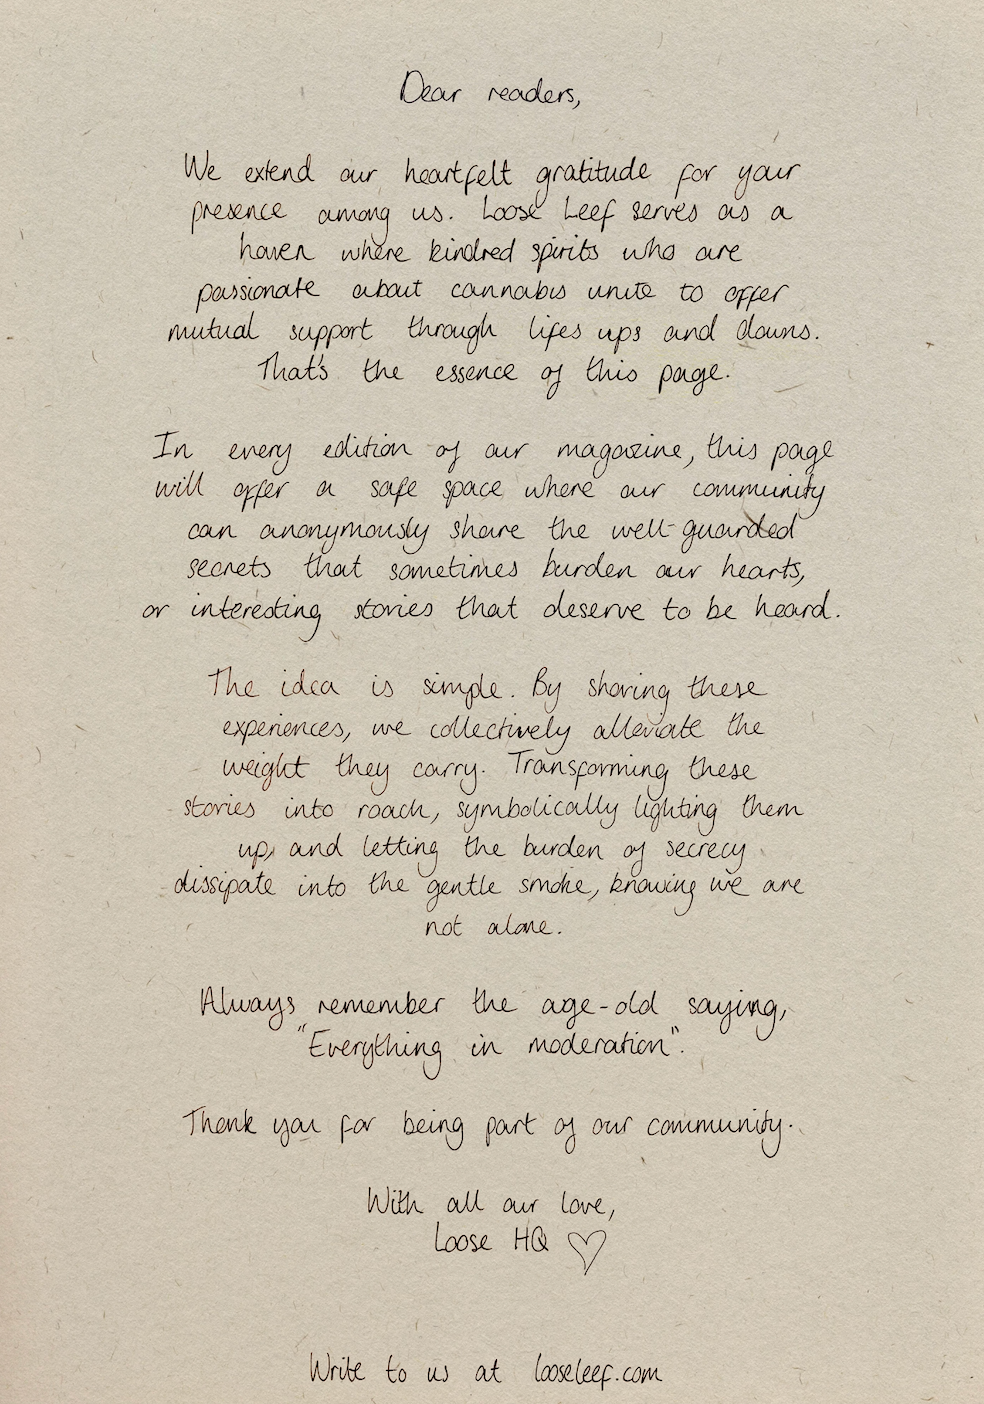 Dear readers,
We extend our heartfelt gratitude for your
presence among us. Loose Leef serves as a
haven where kindred spirits who are
passionate about cannabis unite to offer
mutual support through lifes ups and downs.
That's the essence of this page.
In every edition of our magazine, this page
will offer a safe space where our community
can anonymously share the well-guarded
secrets that sometimes burden our hearts,
or interesting stories that deserve to be heard.
The idea is simple. By sharing these
experiences, we collectively alleviate the
weight they carry. Transforming these
stories into roach, symbolically lighting them
up, and letting the burden of secrecy
dissipate into the gentle smoke, knowing we are
not alone.
Always remember the age-old saying,
"Everything in moderation".
Thank you for being part of our community.
With all our love,
Loose HQ ♡
Write to us at looseleef.com